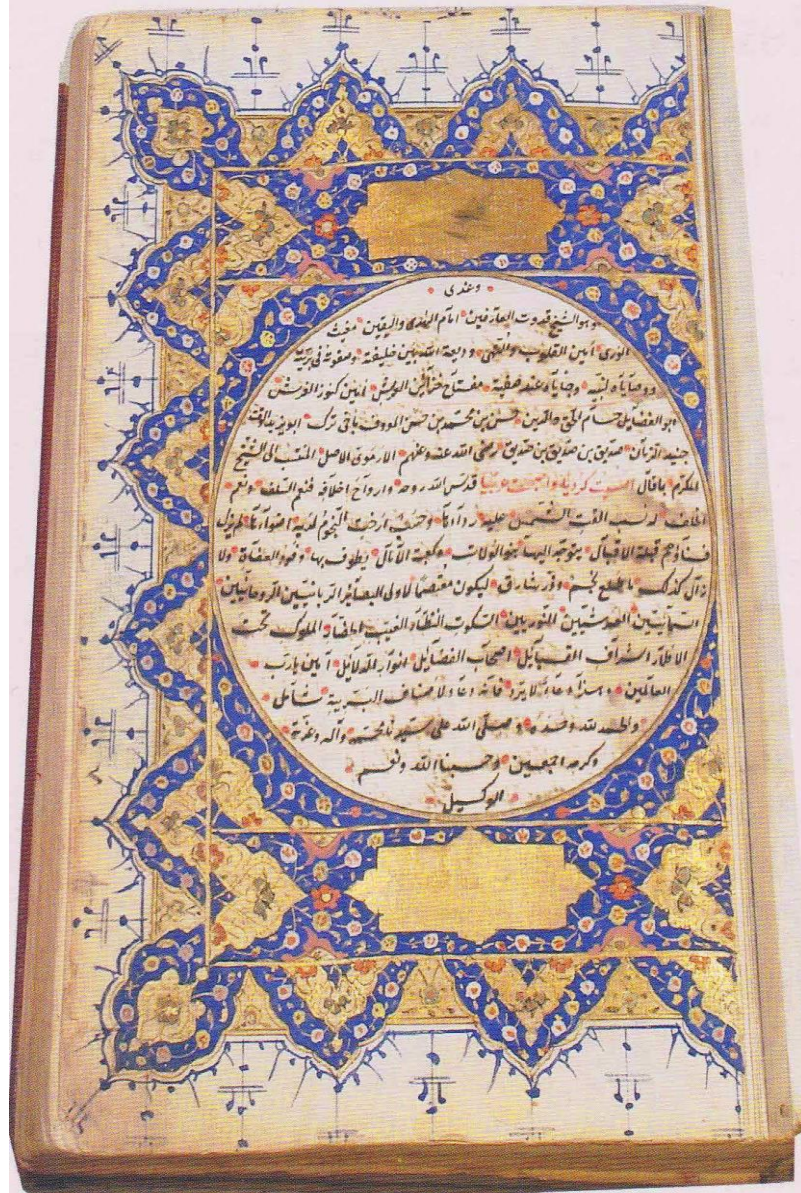 وعندی
وهو الشیخ قدوت العارفین امام الهدی والیقین مغیث
الوری امین القلوب والنهی ودیعة الله بین خلیقته وصفوته فی بریته
ووصایاه لنبیه وخبایاه عند صفیه مفتاح خزآئن العرش امین کنوز الفرش
ابو الفضایل حسام الحق والدین حسن بن محمد بن حسن المعروف باخی ترک ابو یزید الوقت
جنید الزمان صدیق بن صدیق بن صدیق رضی الله عنه وعنهم الارموی الاصل المنتسب الی الشیخ
المکرم بما قال امسیت کردیا واصبحت عربیا قدس الله روحه وارواح اخلافه فنعم السلف ونعم
الخلف له نسب القت الشمس علیه ردآءها وحسب ارخت النجوم لدیه اضوآءها لم یزل
فنآؤهم قبلة الاقبال یتوجه الیها بنو الولات وکعبة الآمال یطوف بها وفود العفاة ولا
زال کذلک ما طلع نجم وذر شارق لیکون معتصما لاولی البصائر الربانیین الروحانیین
السمآئیین العرشیین النوریین السکوت النظار الغیب الحضار الملوک تحت
الاطمار اشراف القبآئل اصحاب الفضآئل انوار الدلآئل آمین یا رب
العالمین وهذا دعآء لا یرد فانه دعآء لاصناف البریة شامل
والحمد لله وحده وصلی الله علی سیدنا محمد وآله وعترته
اجمعین وحسبنا الله ونعم
الوکیل